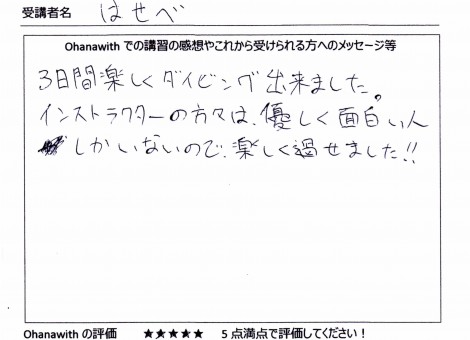 受講者名 はせべ
Ohanawith での講習の感想やこれから受けられる方へのメッセージ等
3日間楽しくダイビング出来ました。
インストラクターの方々は、優しく面白い人
しかいないので、楽しく過せました!!
Ohanawith の評価 ★★★★★ 5点満点で評価してください!